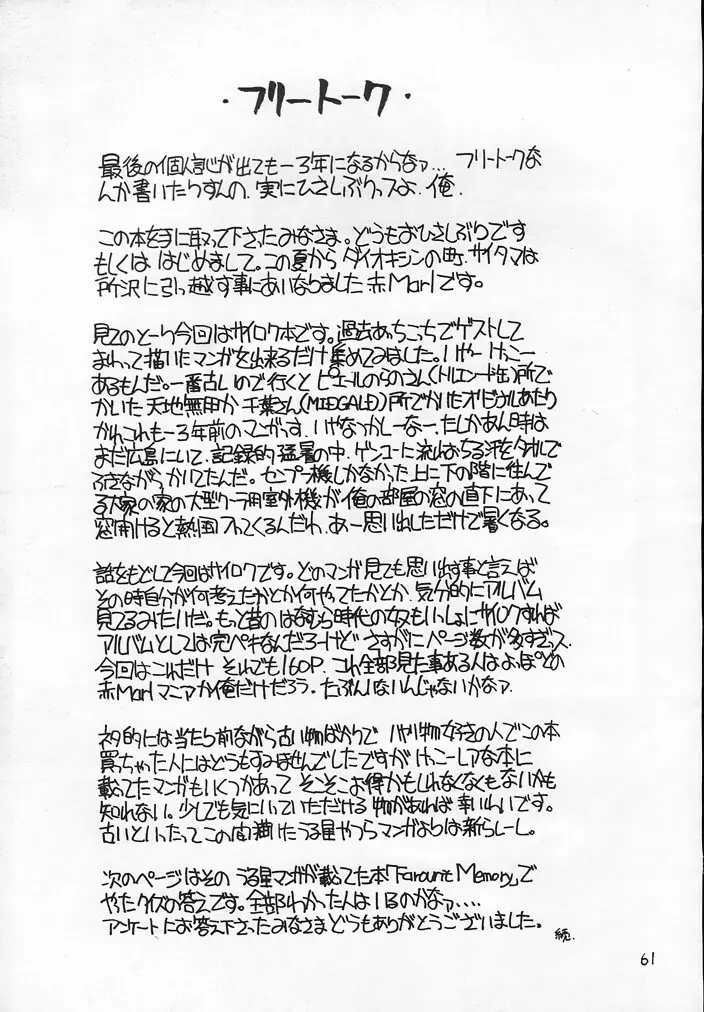 ・フリートーク・
最後の個人誌が出てもー3年になるからなァ… フリートークな
んか書いたりすんの、実にひさしぶりっスよ、俺、
この本を手に取って下さったみなさま。どうもおひさしぶりです
もしくは はじめまして。この夏から ダイオキシンの町、サイタマは
所沢に引っ越す事にあいなりました 赤Marlです。
見てのとーり今回はサイロク本です。過去あっちこっちでゲストして
まわって描いたマンガを出来るだけ集めてみました。いやーけっこー
あるもんだ。一番古いので行くと ピエールのらのさん(トルエンドラム缶)所で
かいた 天地無用か 千葉さん(MIDGALD)所でかいたオリジナルあたり
かれこれも一3年前のマンガっす。いやなつかしーなー、たしかあん時は
まだ広島にいて、記録的猛暑の中、ゲンコーに流れおちる汗をタオルで
ふきながら かいてたんだ。センプー機しかなかった上に下の階に住んで
る大家の家の大型クーラー用室外機が俺の部屋の窓の直下にあって
窓開けると熱風入ってくるんだわ、あー思い出しただけで暑くなる。
話をもどして今回はサイロクです。どのマンガ見ても思い出す事と言えば
その時自分が何考えたかとか何やってたかとか、気分的にアルバム
見てるみたいだ。もっと昔のはなむら時代の奴もいっしょにサイロクすれば
アルバムとしては完ペキなんだろーけど さすがに ページ数が多すぎっス
今回はこれだけ それでも160P、これ全部見た事ある人はよっぽどの
赤Marlマニアか俺だけだろう。たぶんいないんじゃないかなァ
ネタ的には当たり前ながら古い物ばかりで ハヤリ物好きの人でこの本
買っちゃった人にはどうもすみませんでしたですが けっこーレアな本に
載ってたマンガもいくつかあって そこそこお得かもしれなくなくもないかも
知れない。少しでも気にいっていただける物があれば 幸いです。
古いといったってこの間描いたうる星やつらマンガよりは新らしーし。
次のページはその うる星マンガが載ってた本「Favourite Memory」で
やったクイズの答えです。全部わかった人はいるのかなァ....
アンケートにお答え下さったみなさまどうもありがとうございました。
続.
61